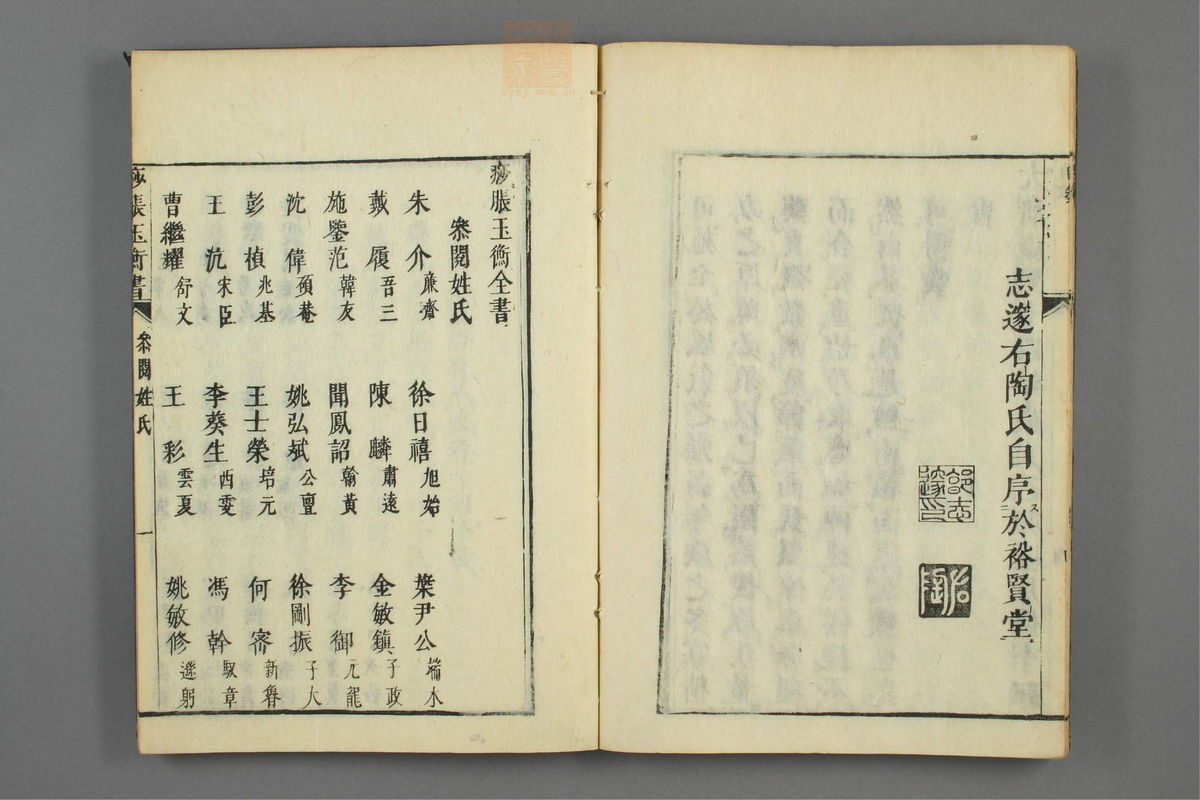 志邃右陶氏自序於裕賢堂
痧脹玉衡全書
叅閱姓氏
朱介廉齋 徐日禧旭始 葉尹公
戴履吾三 陳麟肅遠 金敏鎮子政
施鑒范韓友 聞鳳詔翰黃 李御元龍
沈偉碩菴 姚弘斌公亶 徐剛振子大
彭楨兆基 王士榮培元 何密新
王沆宋臣 李葵生西雯 馮幹馭章
曹繼耀舒文 王彩雲夏 姚敏修遜躬
痧脹玉衡書 叅閱姓氏 一